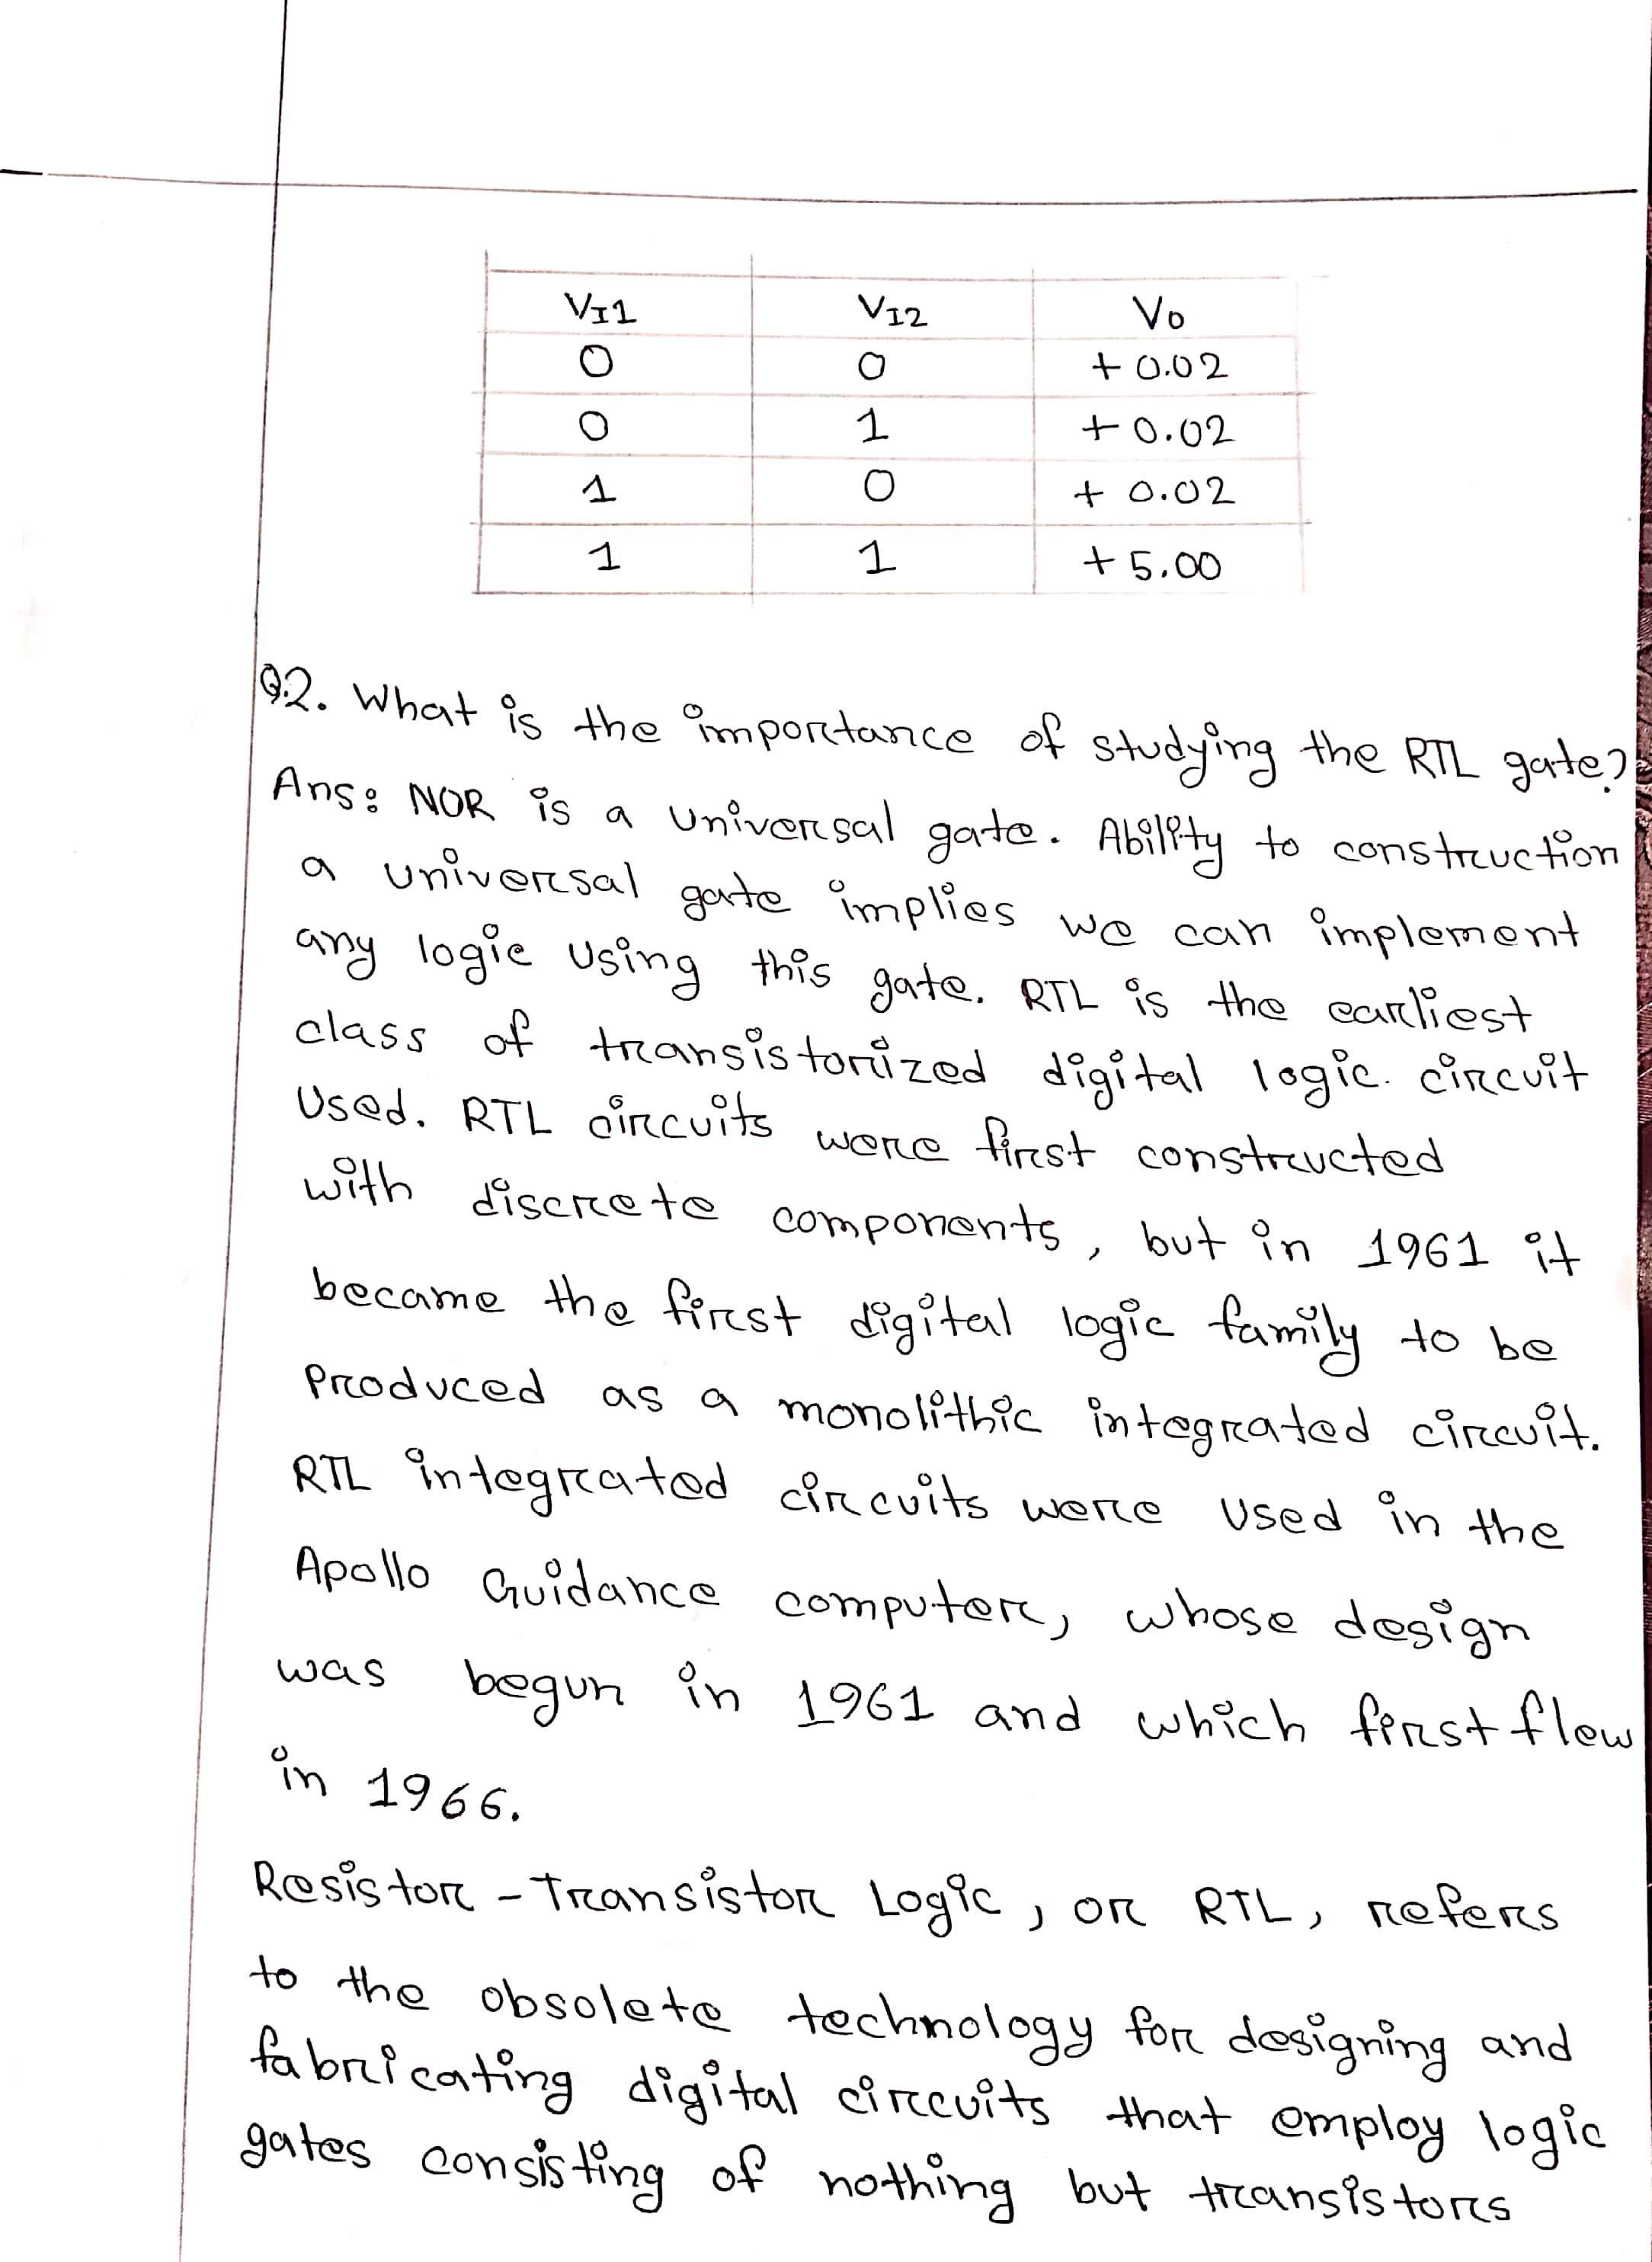 VI1 VI2 Vo
0 0 + 0.02
0 1 + 0.02
1 0 + 0.02
1 1 + 5.00
Q.2. What is the importance of studying the RTL gate?
Ans: NOR is a universal gate. Ability to construction
a universal gate implies we can implement
any logic using this gate. RTL is the earliest
class of transistorized digital logic circuit
used. RTL circuits were first constructed
with discrete components, but in 1961 it
became the first digital logic family to be
produced as a monolithic integrated circuit.
RTL integrated circuits were used in the
Apollo Guidance computer, whose design
was begun in 1961 and which first flew
in 1966.
Resistor - Transistor Logic, or RTL, refers
to the obsolete technology for designing and
fabricating digital circuits that employ logic
gates consisting of nothing but transistors